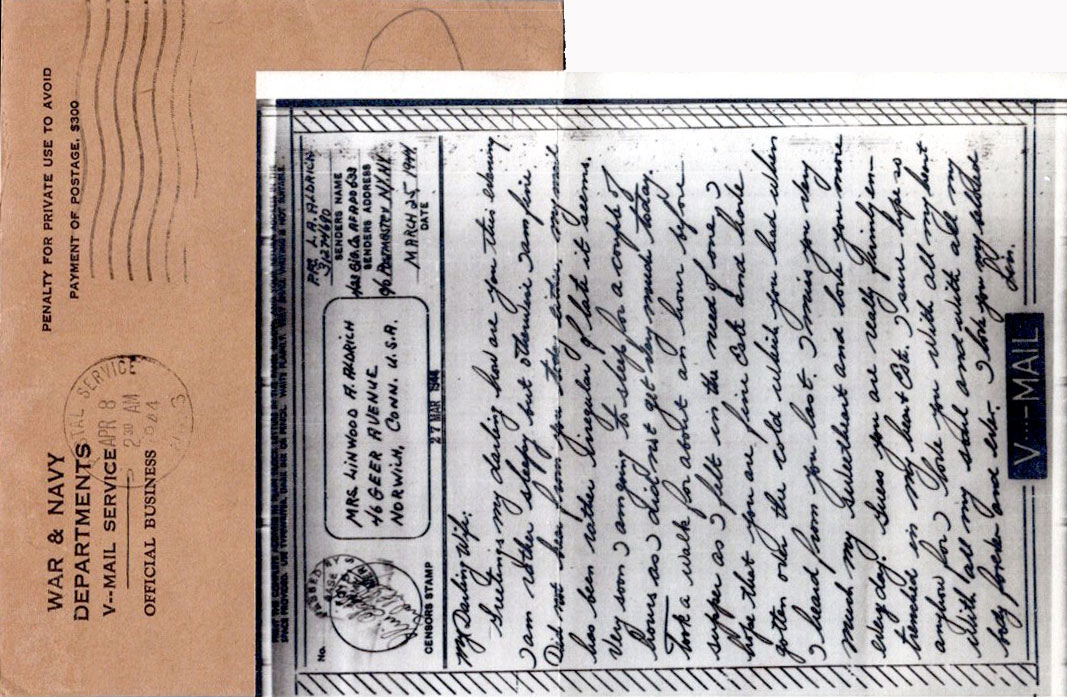 WAR & NAVY
DEPARTMENTS
V--MAIL SERVICE
OFFICIAL BUSINESS
PENALTY FOR PRIVATE USE TO AVOID
PAYMENT OF POSTAGE, $300
TAL SERVICE
APR 8
2 30 AM
1944
3
No.
PASSED BY
BASE
CENSORS STAMP
MRS. LINWOOD A. ALDRICH
46 GEER AVENUE
NORWICH, CONN. U.S.A.
L. A. ALDRICH
31274680
SENDERS NAME
APO 633
SENDERS ADDRESS
c/o POSTMASTER N.Y. N.Y.
MARCH 25 1944
DATE
27 MAR 1944
My Darling Wife:
Greetings my darling how are you this evening
I am rather sleepy but otherwise I am fine.
Did not hear from you today either, my mail
has been rather irregular of late it seems.
Very soon I am going to sleep for a couple of
hours as I did not get very much today.
Took a walk for about an hour before
supper as I felt in the need of one. I
hope that you are fine Est and have
gotten over the cold which you had when
I heard from you last. I miss you very
much my Sweetheart and love you more
every day. Guess you are really firmly en-
trenched in my heart Est. I sure hope so
anyhow for I love you with all my heart
with all my soul and with all my
body forever and ever. I love you my sweet
Lin.
V---MAIL